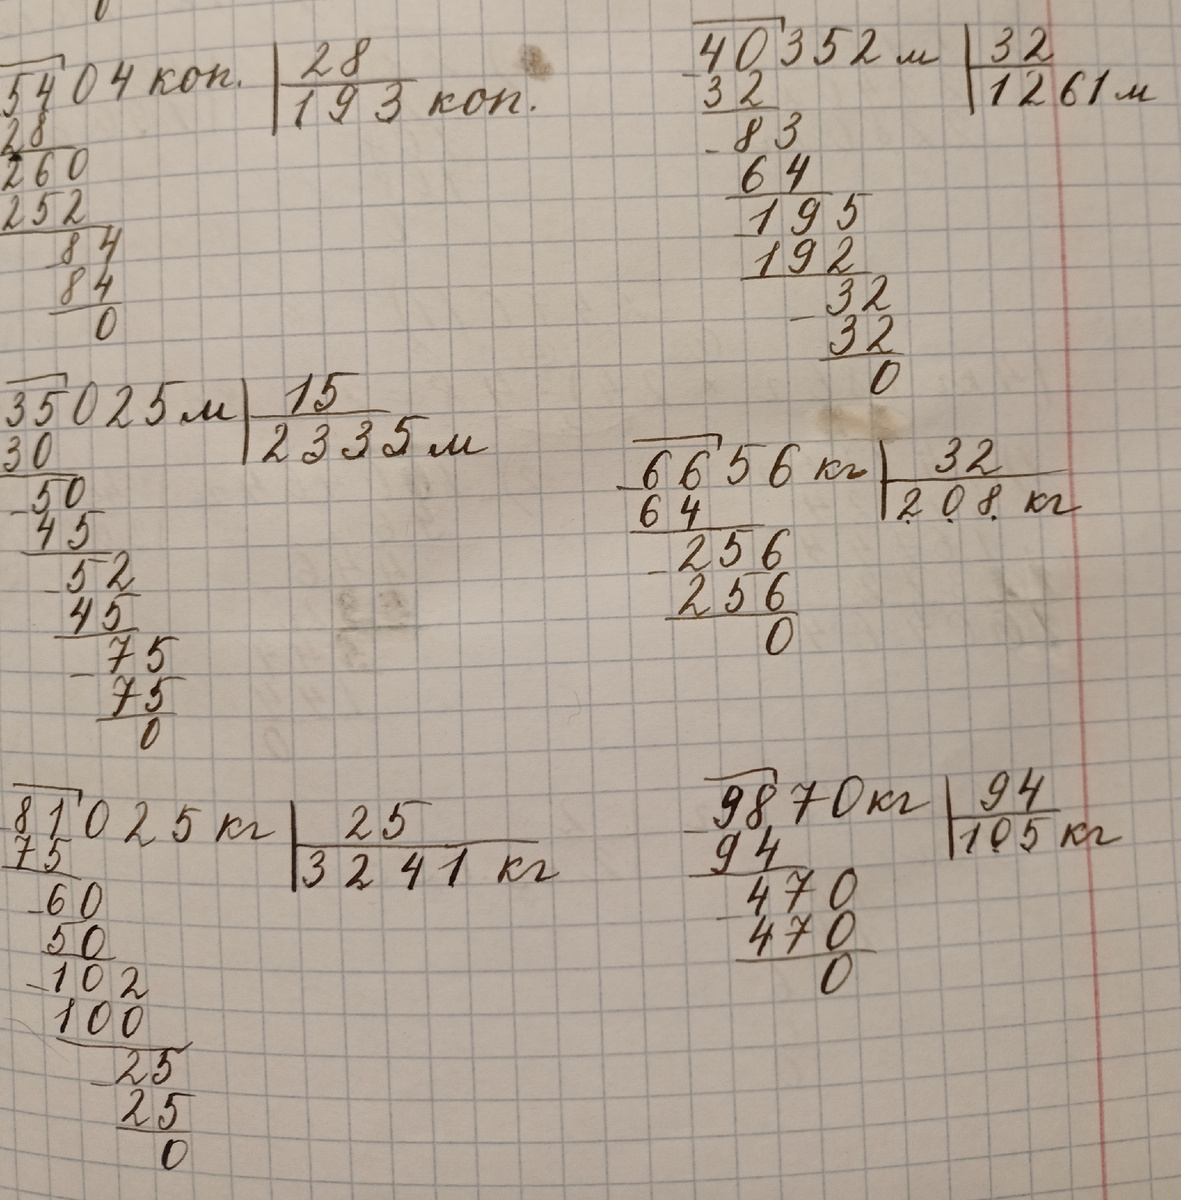 5404 коп. 28
28 193 коп.
260
252
84
84
0
40352 м 32
32 1261 м
83
64
195
192
32
32
0
35025 м 15
30 2335 м
50
45
52
45
75
75
0
6656 кг 32
64 208 кг
256
256
0
81025 кг 25
75 3241 кг
60
50
102
100
25
25
0
9870 кг 94
94 105 кг
470
470
0